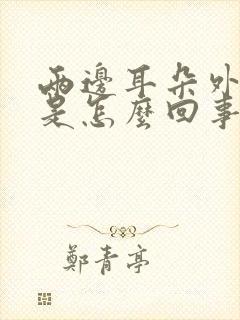 兩邊耳朵外
是怎麼回事
鄭青亭